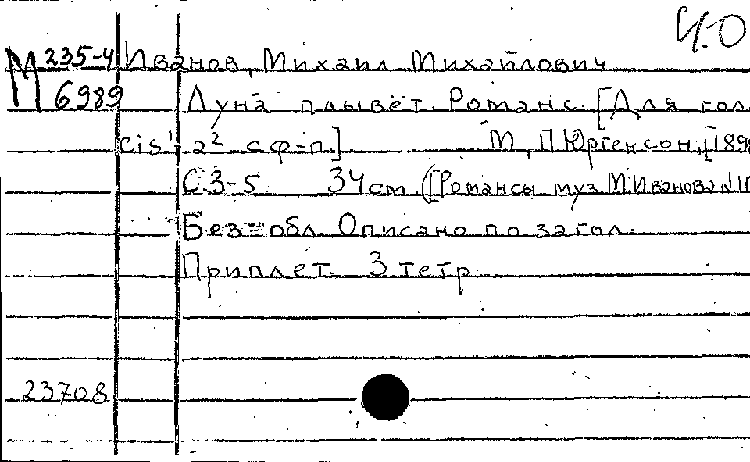 Ч.О
М 235-4 Иванов, Михаил Михайлович
6989 Луна плывёт. Романс. [Для гол
cis¹-a² с ф-п.] М., П. Юргенсон, [189
С. 3-5 34 см. (Романсы муз. М. Иванова
Без обл. Описано по загол.
Приплет. 3 тетр
23708